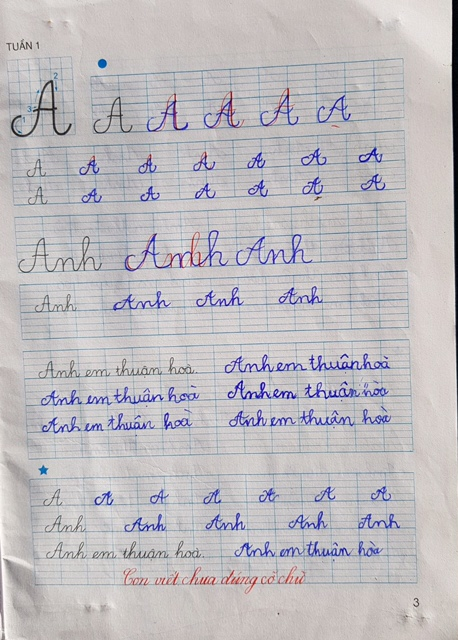 TUẦN 1
A A A A A A
A A A A A A A
A A A A A A A
Anh Anh Anh
Anh Anh Anh Anh
Anh em thuận hoà. Anh em thuận hoà
Anh em thuận hoà Anh em thuận hòa
Anh em thuận hoà Anh em thuận hoà
A A A A A A A
Anh Anh Anh Anh Anh
Anh em thuận hoà. Anh em thuận hòa
Con viết chưa đúng cỡ chữ
3